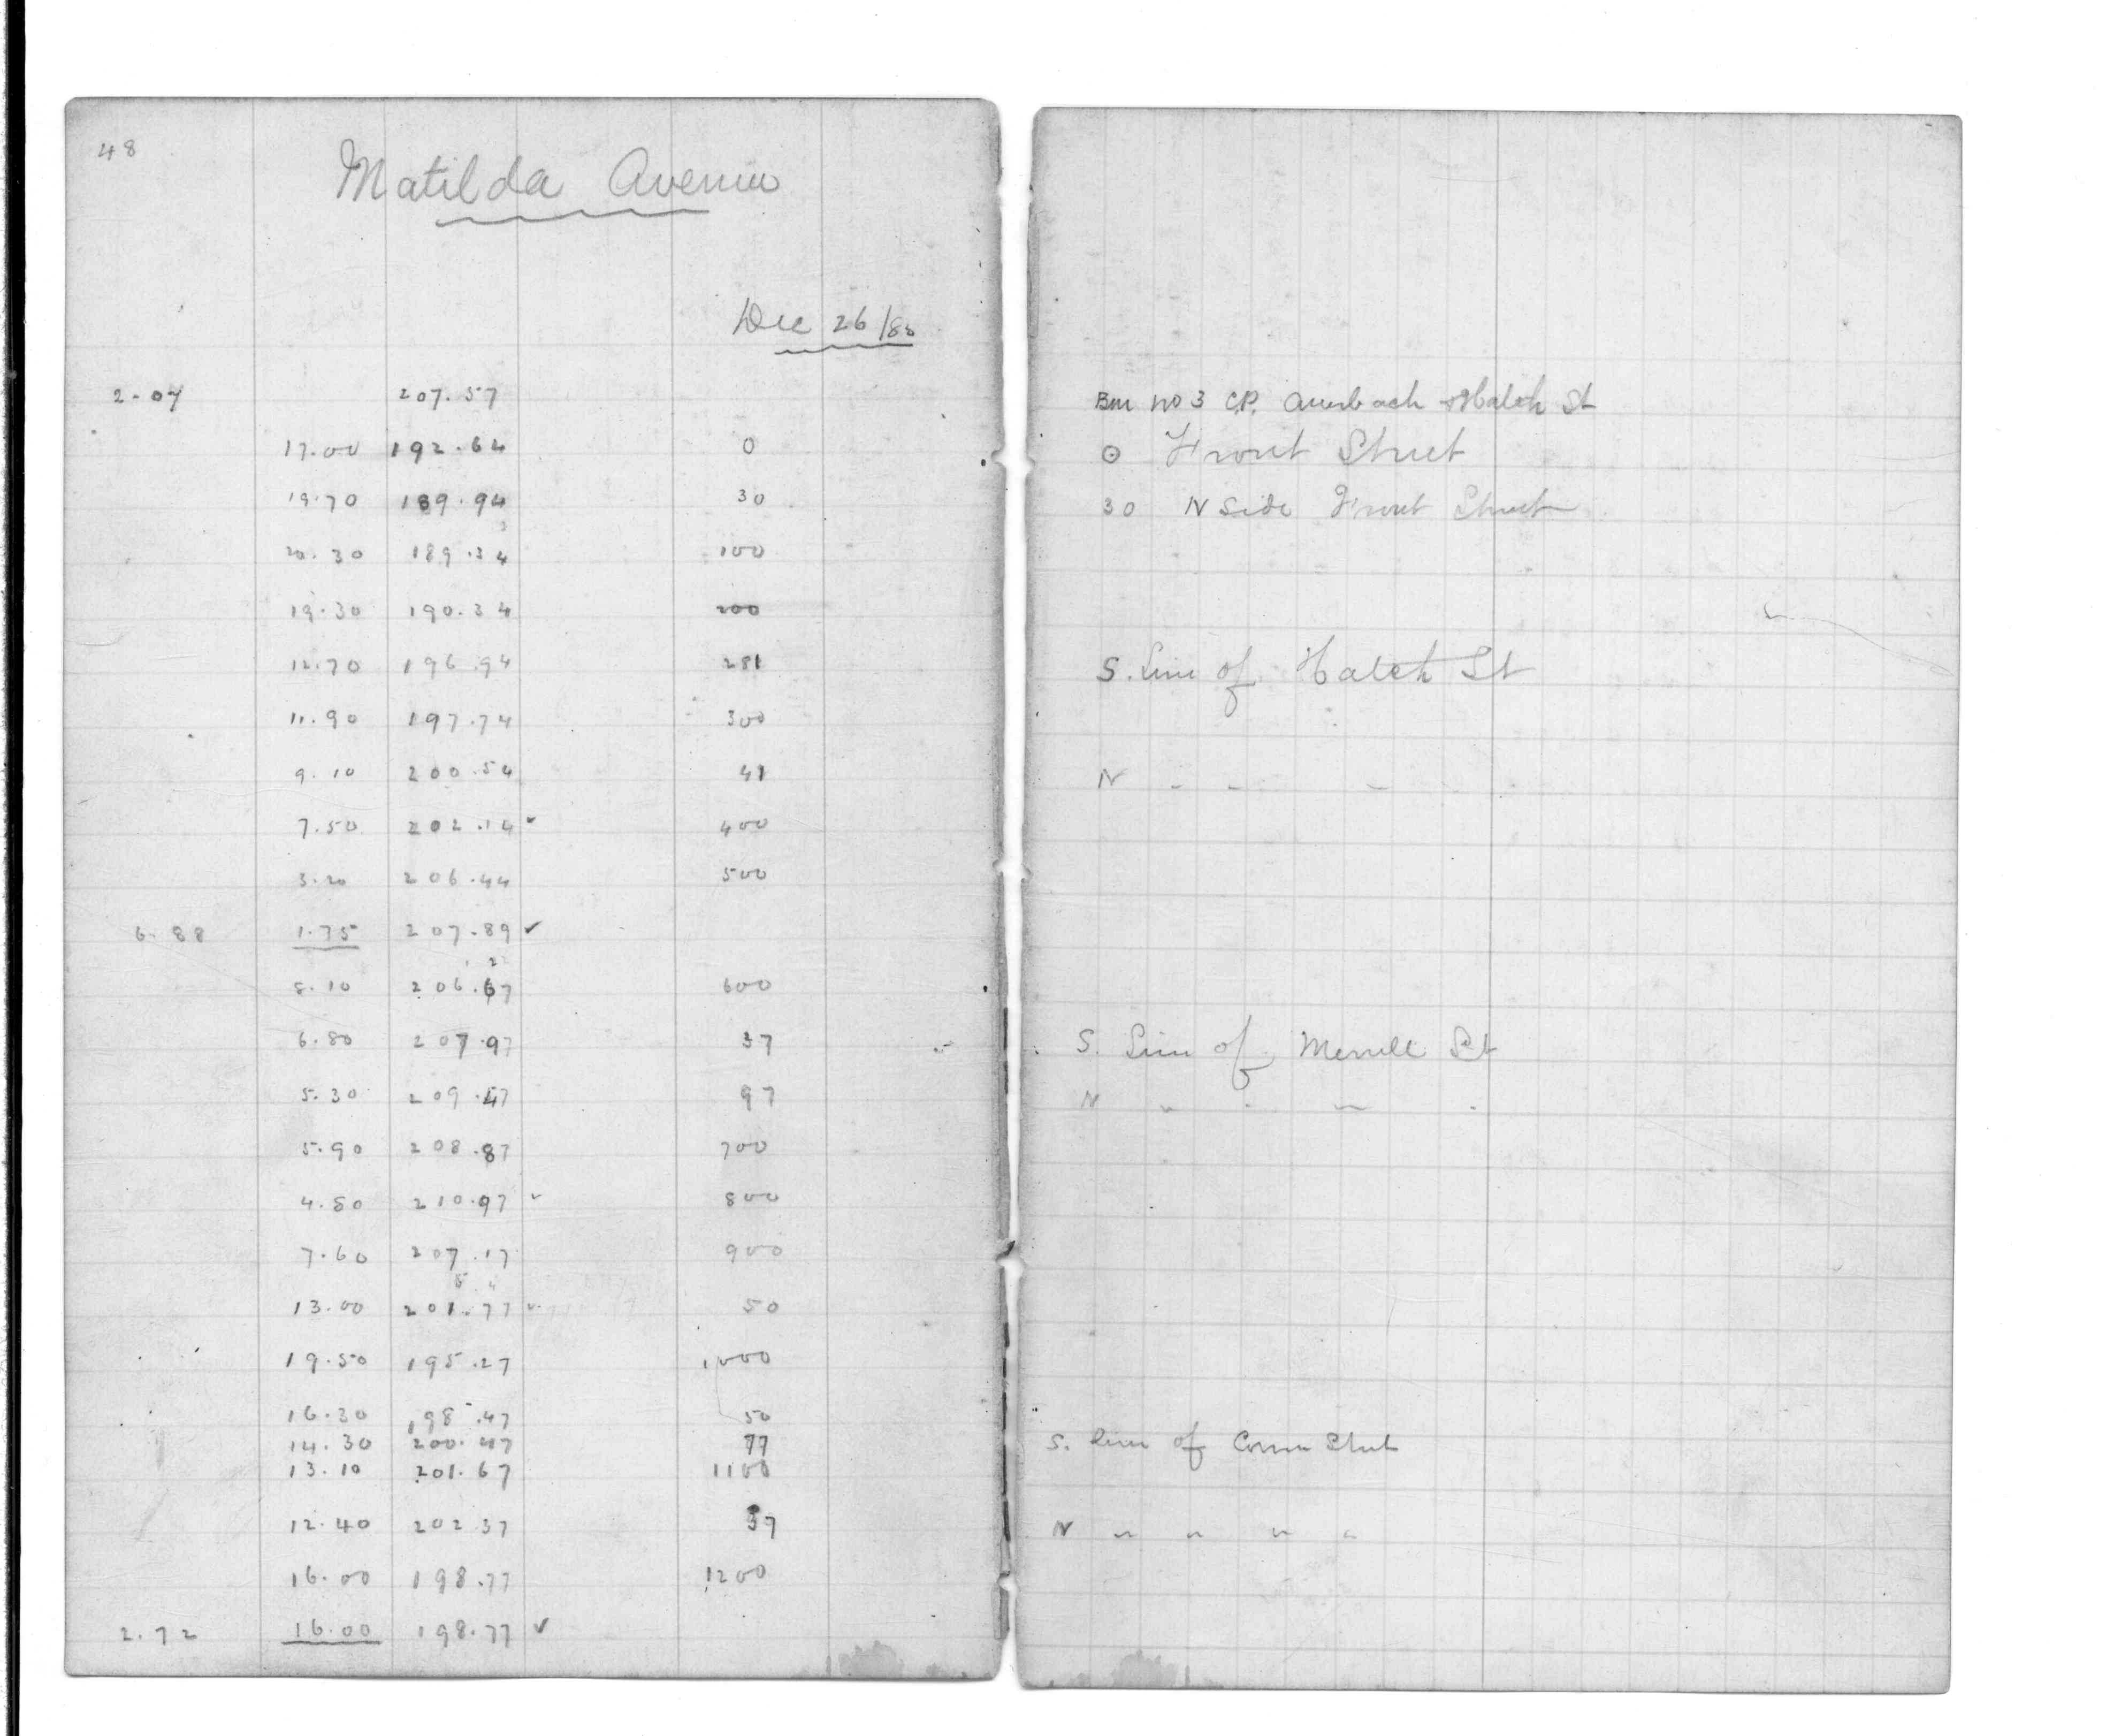 48
Matilda Avenue
Dec 26/88
2.07 207.57 Bm no 3 C.P. Auerbach & Hatch St
17.00 192.64 0 0 Front Street
19.70 189.94 30 30 N Side Front Street
20.30 189.34 100
19.30 190.34 200
12.70 196.94 281 S. Line of Hatch St
11.90 197.74 300
9.10 200.54 41 N " " "
7.50 202.14 ✓ 400
3.20 206.44 500
6.88 1.75 207.89 ✓
8.10 206.67 600
6.80 207.97 37 S. Line of Merrell St
5.30 209.47 97 N " " " "
5.90 208.87 700
4.80 210.97 ✓ 800
7.60 207.17 900
13.00 201.77 ✓ 50
19.50 195.27 1000
16.30 198.47 50
14.30 200.47 77 S. Line of Street
13.10 201.67 1100
12.40 202.37 37 N " " " "
16.00 198.77 1200
2.72 16.00 198.77 ✓